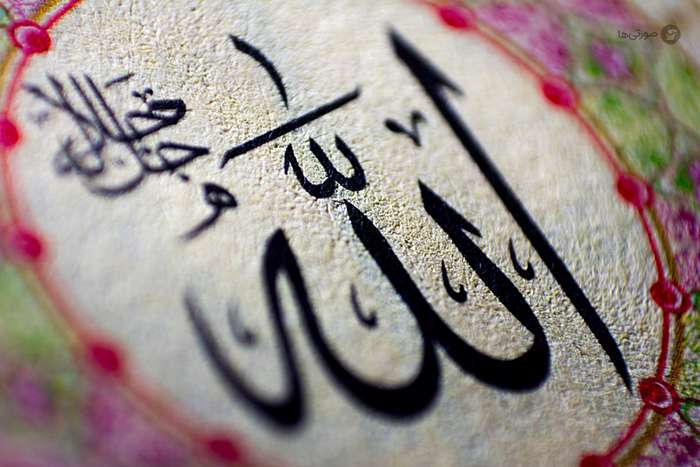 صورتی‌ها
الله
جل جلاله